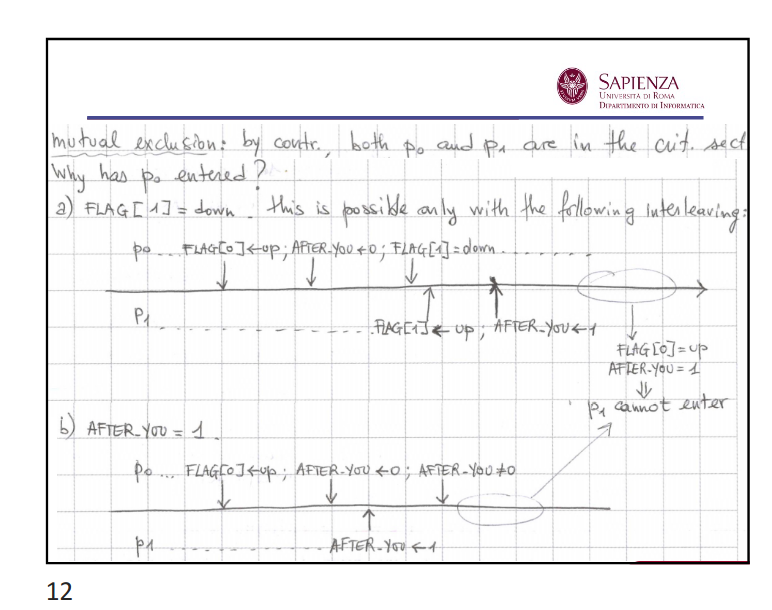 SAPIENZA
UNIVERSITÀ DI ROMA
DIPARTIMENTO DI INFORMATICA
mutual exclusion: by contr., both p0 and p1 are in the crit. sect
Why has p0 entered?
a) FLAG[1] = down. this is possible only with the following interleaving:
p0 ... FLAG[0] ← up; AFTER_YOU ← 0; FLAG[1] = down .......
P1 ............... FLAG[1] ← up; AFTER_YOU ← 1
FLAG[0] = up
AFTER_YOU = 1
⇓
p1 cannot enter
b) AFTER_YOU = 1.
p0 ... FLAG[0] ← up; AFTER_YOU ← 0; AFTER_YOU ≠ 0
p1 ............... AFTER_YOU ← 1
12